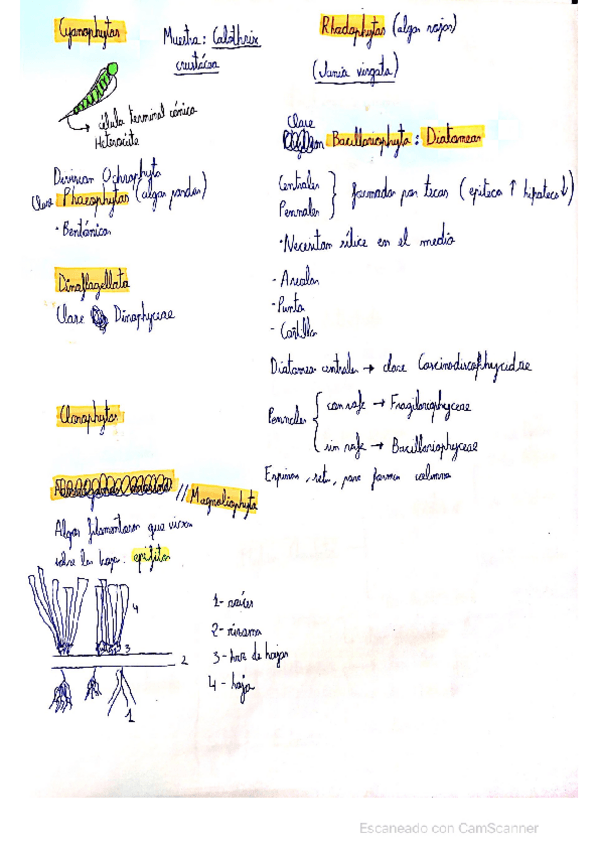 Cyanophytas
Muestra: Calothrix
crustácea
célula terminal cónica
Heterocite
División Ochrophyta
Clase Phaeophytas (algas pardas)
• Bentónicas
Dinoflagellata
Clase Dinophyceae
Clorophytas
// Magnoliophyta
Algas filamentosas que viven
sobre las hojas. epífitas
4
3
2
1
1- raíces
2- rizoma
3- haz de hojas
4- hoja
Rhodophytas (algas rojas)
(Jania virgata)
Clase
Bacillariophyta: Diatomeas
Centrales
Pennales
formadas por tecas (epiteca ↑ hipoteca ↓)
• Necesitan sílice en el medio
- Areolas
- Punta
- Costillas
Diatomeas centrales → clase Coscinodiscophyceae
Pennales
con rafe → Fragilariophyceae
sin rafe → Bacillariophyceae
Espinas, para formar columna
Escaneado con CamScanner